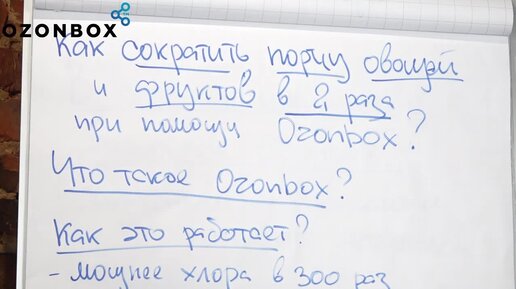 OZONBOX
Как сократить порчу овощей
и фруктов в 2 раза
при помощи Ozonbox?
Что такое Ozonbox?
Как это работает?
- мощнее хлора в 300 раз